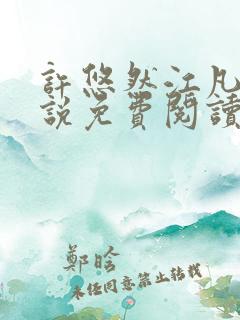 許悠然江凡
説免費閱讀
鄭晗
未經同意禁止轉載